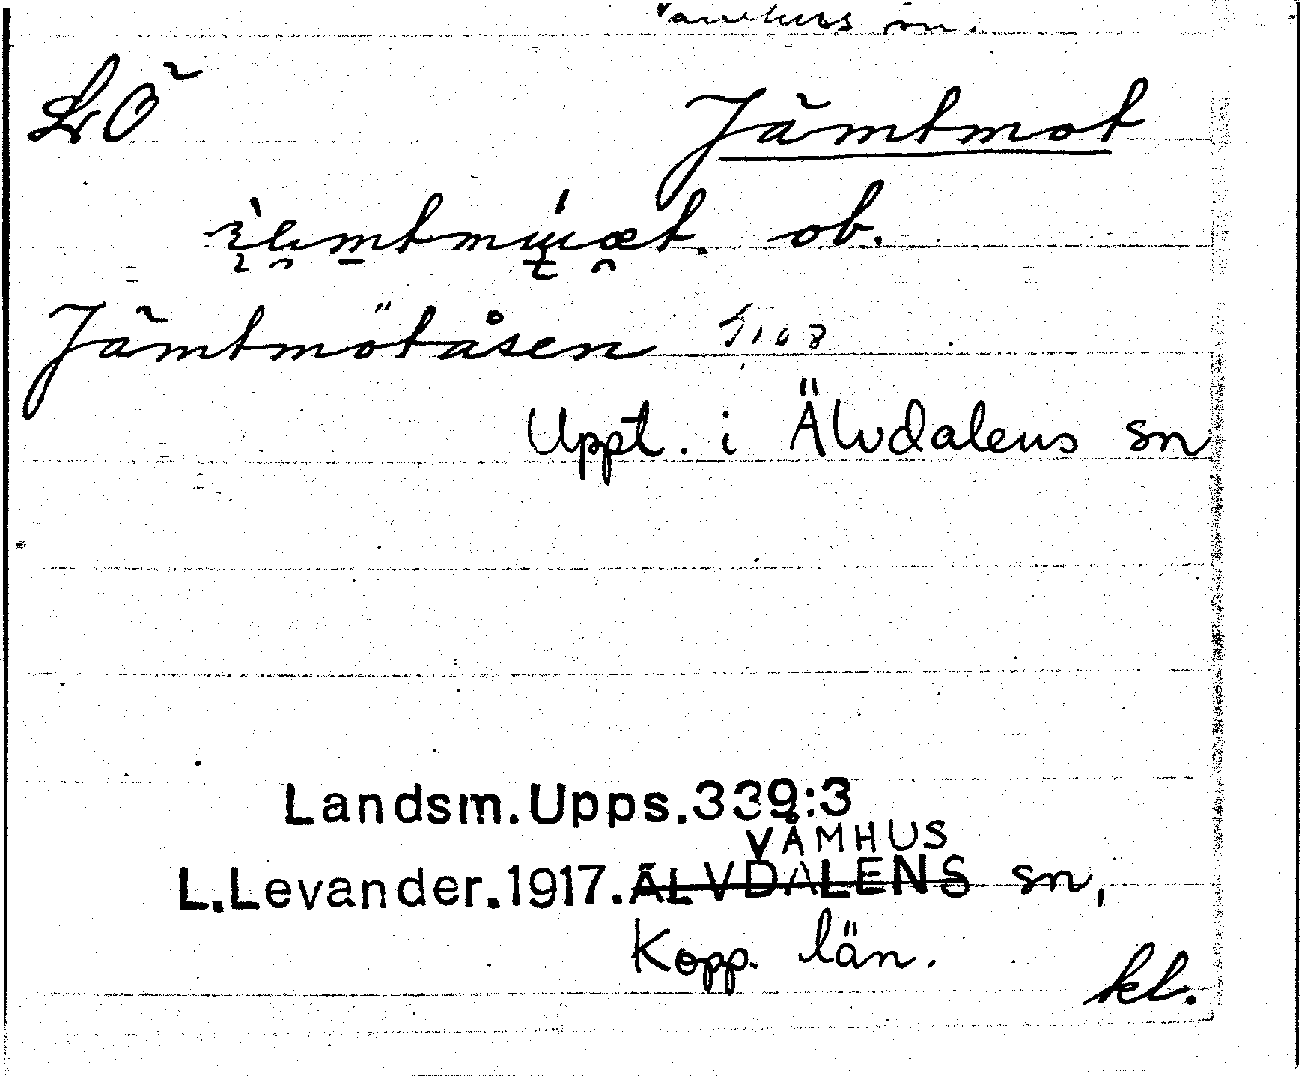 sn.
LÖ
Jämtmot
ob.
Jämtmötåsen
Uppt. i Älvdalens sn
Landsm.Upps.339:3
VÅMHUS
L.Levander.1917.ÄLVDALENS sn,
Kopp. län.
kl.